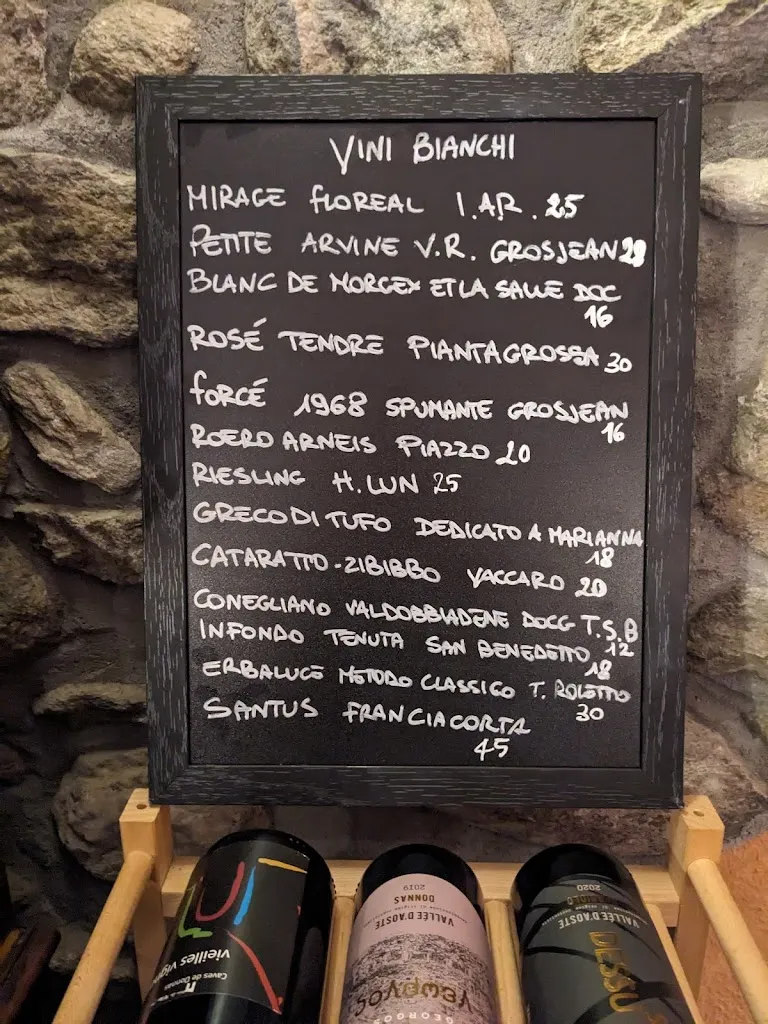 VINI BIANCHI
MIRAGE FLOREAL I.A.R. 25
PETITE ARVINE V.R. GROSJEAN 29
BLANC DE MORGEX ET LA SALLE DOC
16
ROSÉ TENDRE PIANTAGROSSA 30
FORCÉ 1968 SPUMANTE GROSJEAN
16
ROERO ARNEIS PIAZZO 20
RIESLING H. LUN 25
GRECO DI TUFO DEDICATO A MARIANNA
18
CATARATTO-ZIBIBBO VACCARO 20
CONEGLIANO VALDOBBIADENE DOCG T.S.B
12
INFONDO TENUTA SAN BENEDETTO
18
ERBALUCE METODO CLASSICO T. ROLETTO
30
SANTUS FRANCIACORTA
45
vieilles vig
Caves de Donnas
2019
DONNAS
VALLÉE D'AOSTE
γεωργος
GEORGOS
2020
VALLÉE D'AOSTE
DESSU